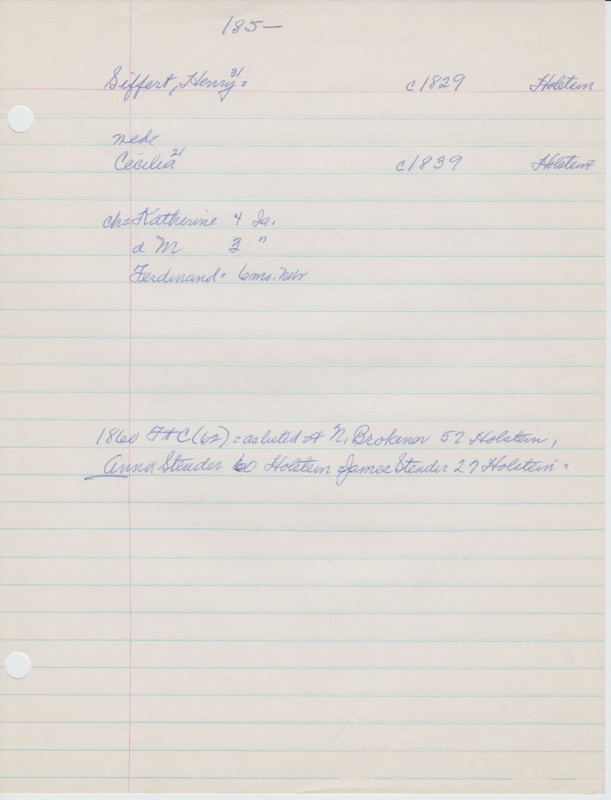 185—
Siffert, Henry 31 = c1829 Holstein
Cecilia 21 c1839 Holstein
ch = Katherine 4 Ia.
d M 3 "
Ferdinand = 6mo. Nebr
1860 (62) = as listed = N. Brokaner 52 Holstein,
Anna Stender 60 Holstein = James Stender 27 Holstein =